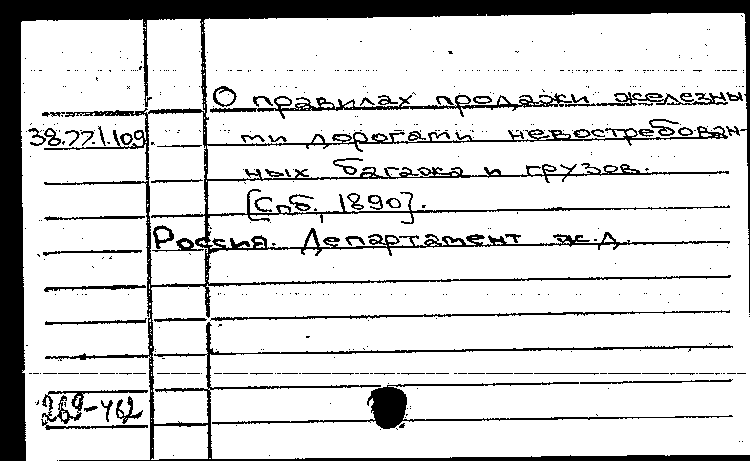 О правилах продажи железны
38.77.1.109. ми дорогами невостребован-
ных багажа и грузов.
[Спб, 1890].
Россия. Департамент ж.д.
269-462